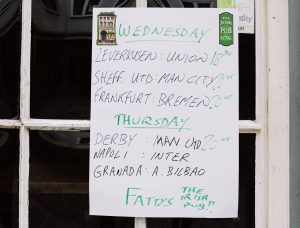 WEDNESDAY
LEVERKUSEN : UNION 18³⁰
SHEFF. UTD : MAN CITY
FRANKFURT : BREMEN 20⁴⁵
THURSDAY
DERBY : MAN UTD 20⁴⁵
NAPOLI : INTER
GRANADA : A. BILBAO
FATTYS THE
IRISH
PUB!!
PUB